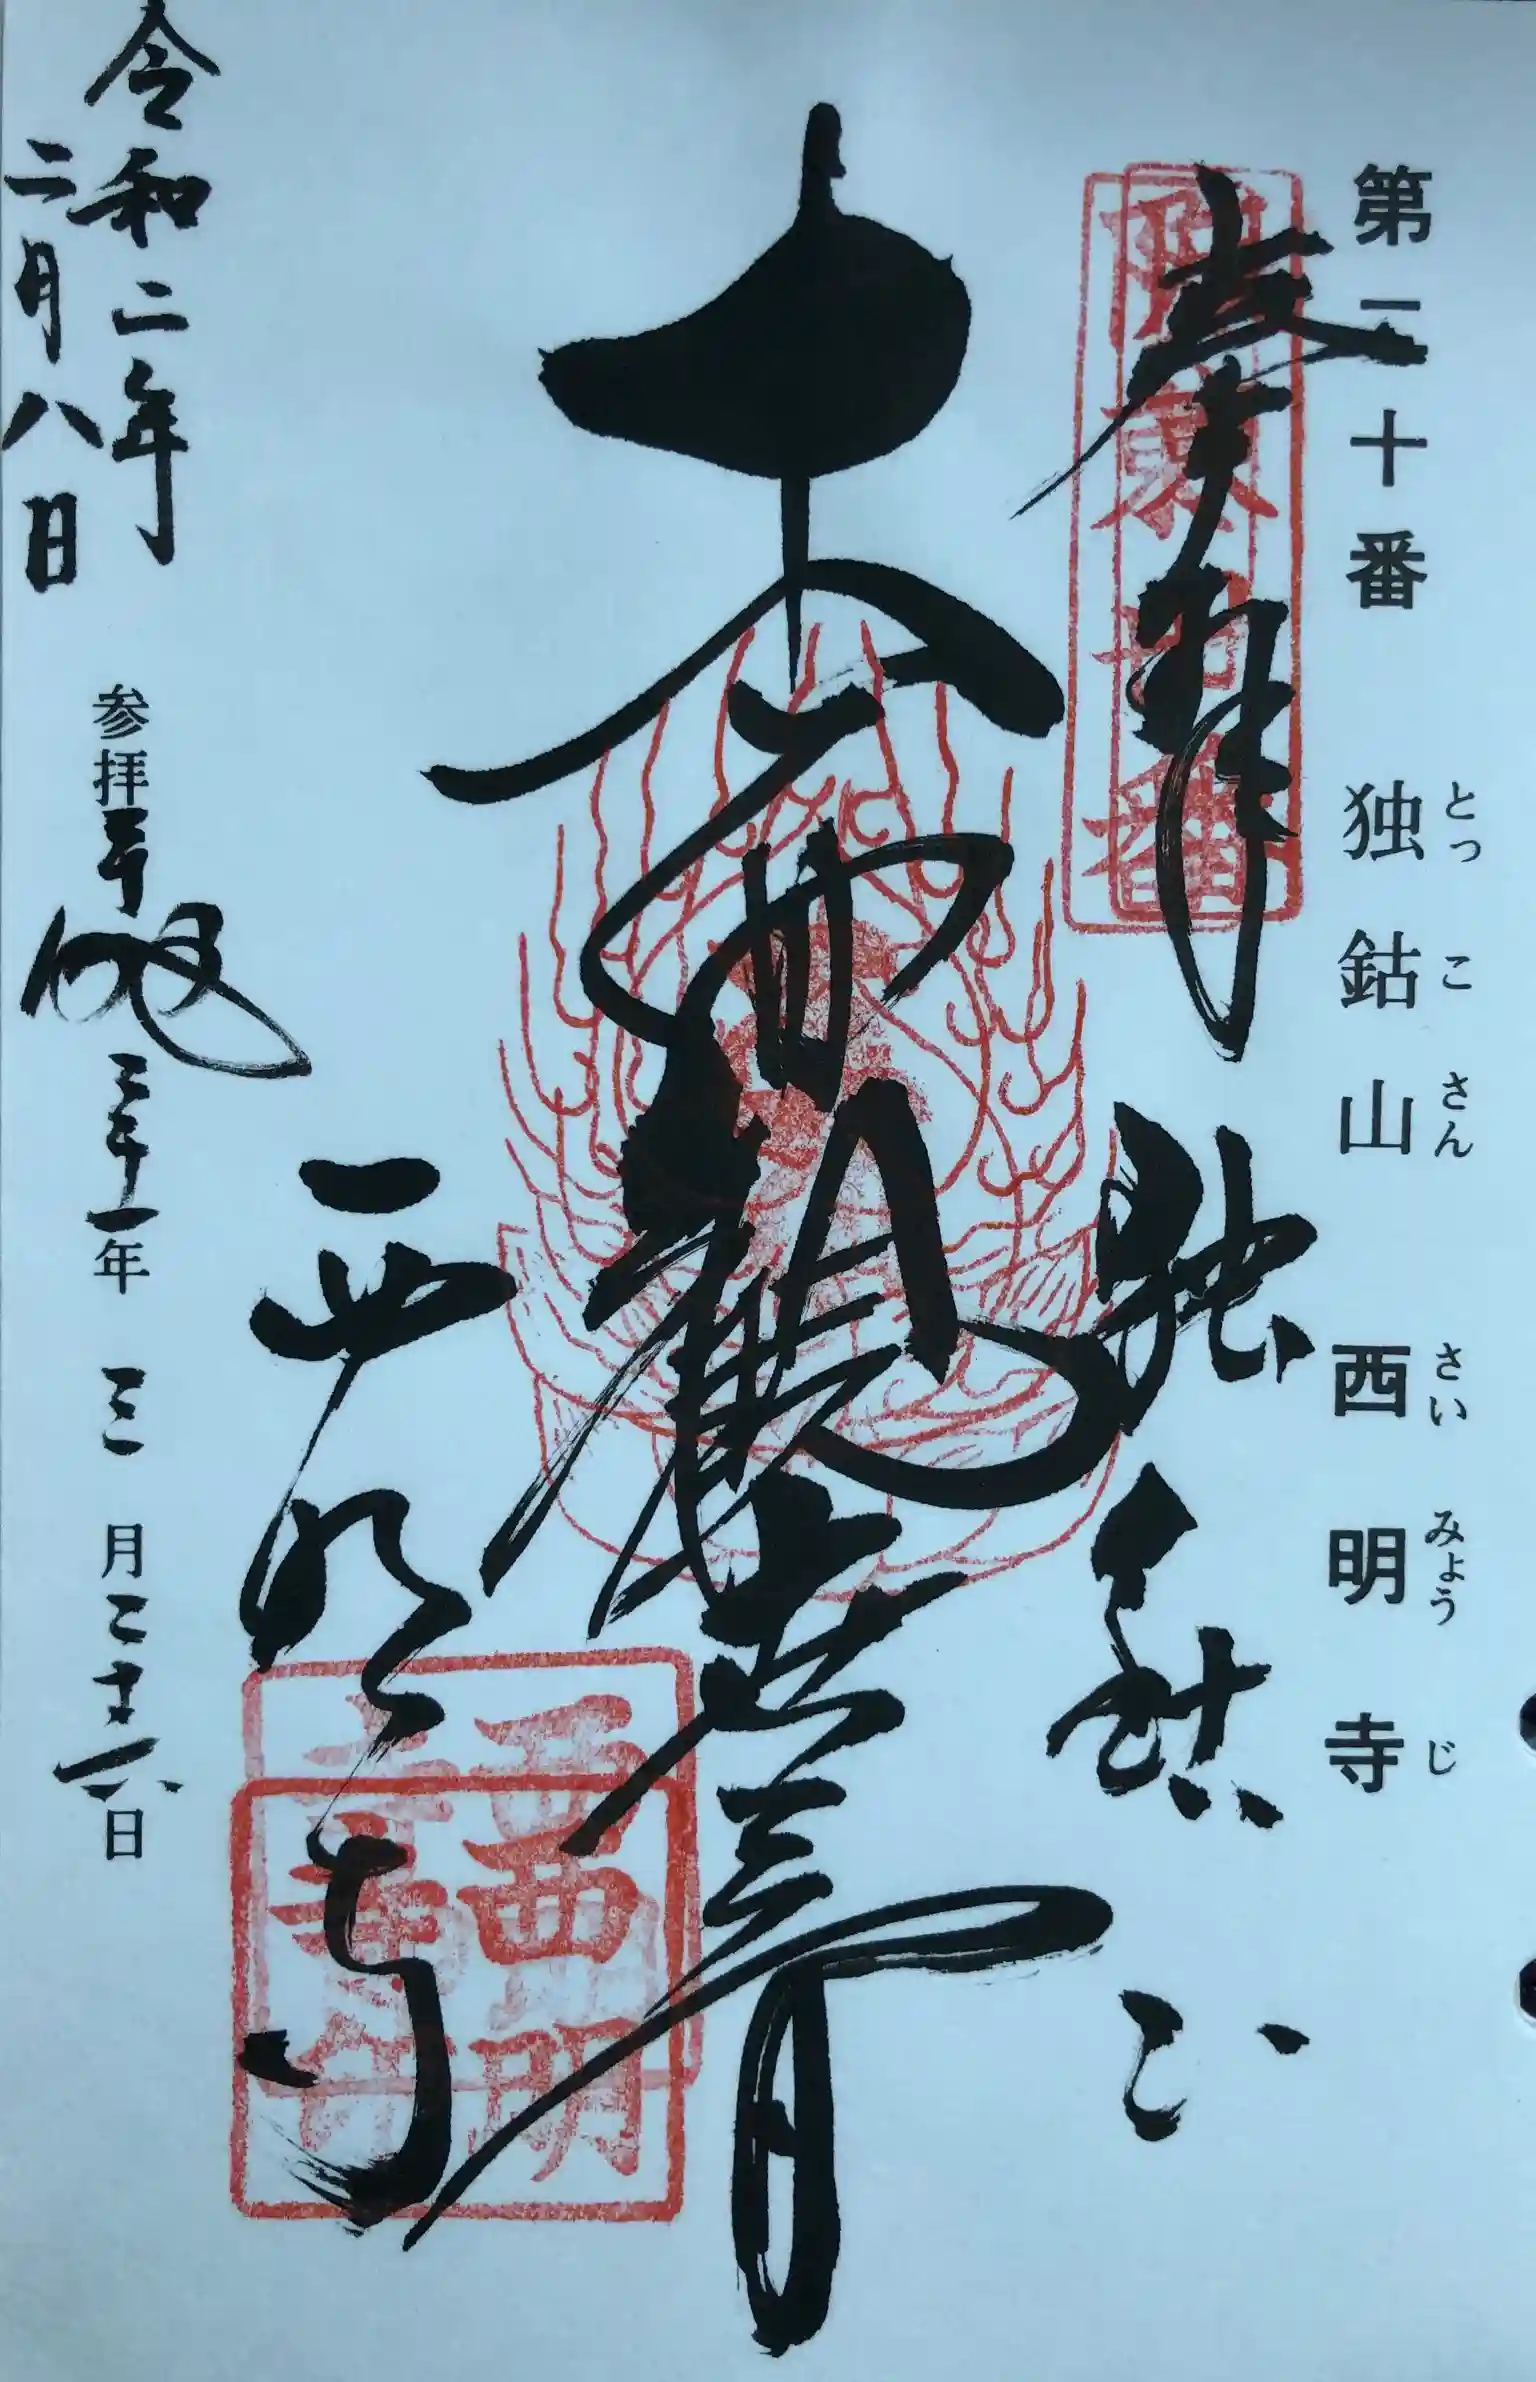 第二十番 独鈷山 西明寺
とっこさん さいみょうじ
奉拝 独鈷山
坂東二十番
十一面観世音
西明寺
西明寺印
参拝 平成三十一年 三月二十八日
令和二年
二月八日